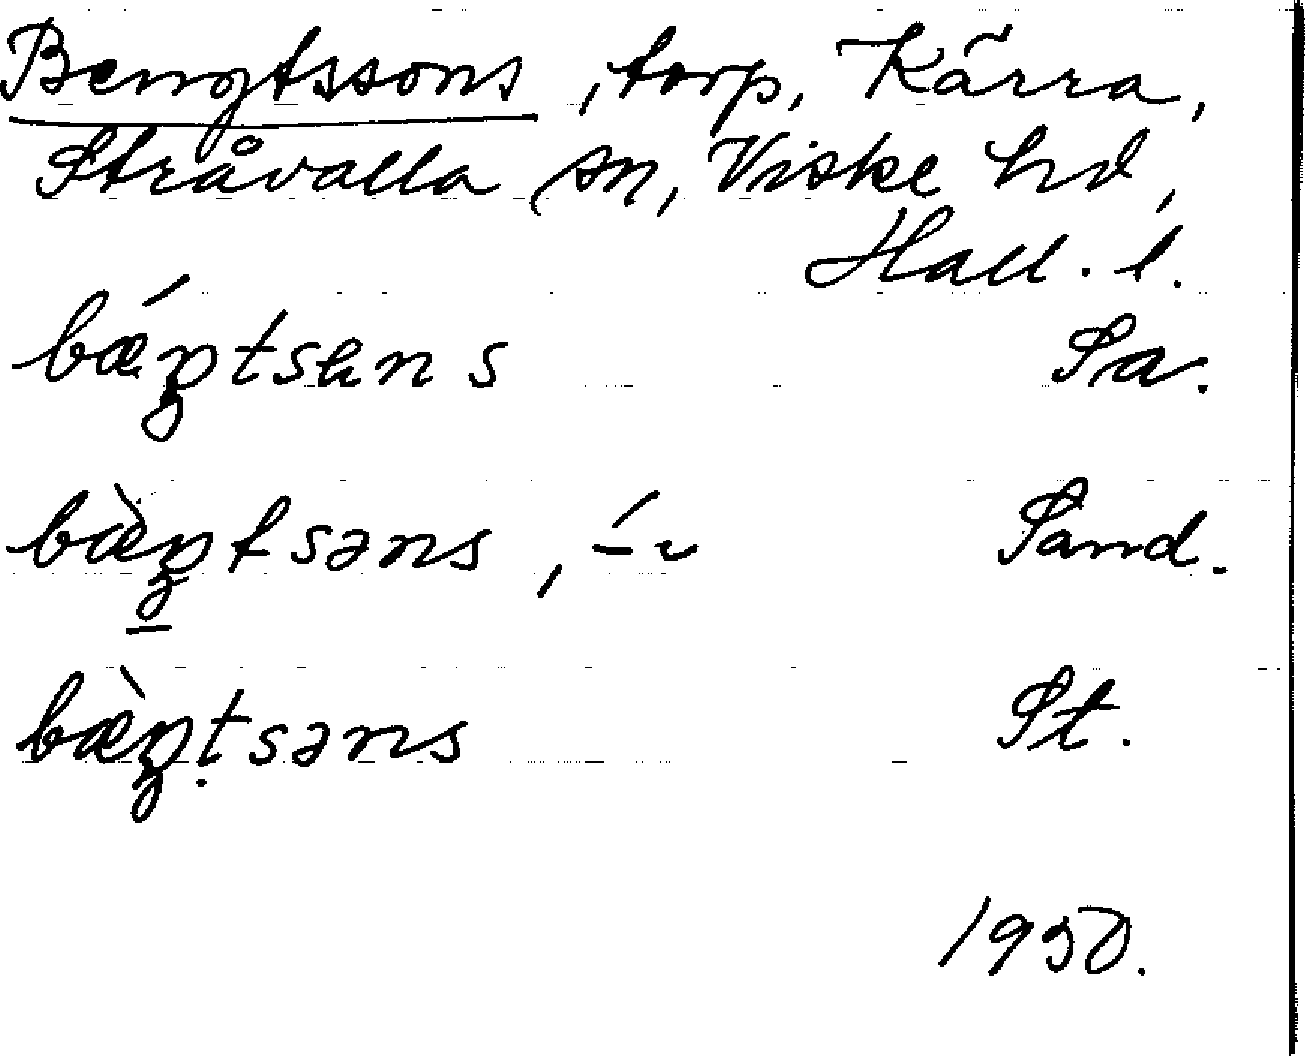 Bengtssons, torp, Kärra,
Stråvalla sn, Viske hd,
Hall. l.
bǽŋtsɐns Sa.
bæ̀ŋtsəns, ́– ̆ Sand.
bæ̀ŋtsəns St.
1930.